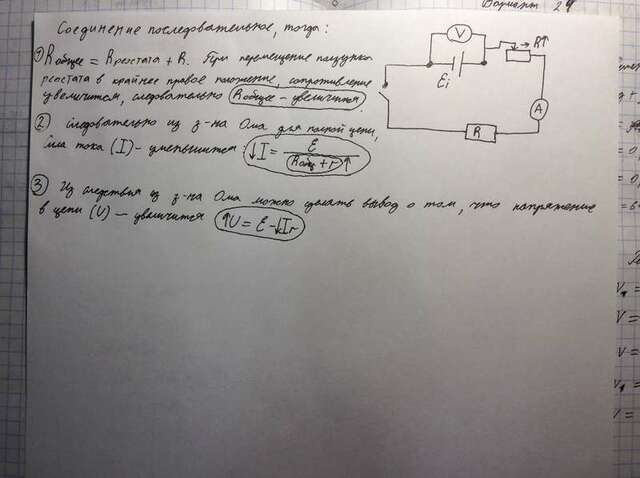 Вариант 24
Соединение последовательное, тогда:
1) Rобщее = Rреостата + R. При перемещение ползунка
реостата в крайнее правое положение, сопротивление
увеличится, следовательно Rобщее – увеличится.
2) следовательно из з-на Ома для полной цепи,
сила тока (I) – уменьшится: ↓I = Ɛ / (Rобщ + r)↑
3) Из следствия из з-на Ома можно сделать вывод о том, что напряжение
в цепи (U) — увеличится ↑U = Ɛ - ↓Ir
V
R↑
Ɛi
A
R